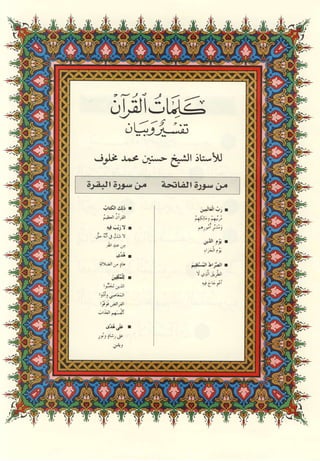 كلمات القرآن
تفسير وبيان
للأستاذ الشيخ حسنين محمد مخلوف
من سورة الفاتحة
▪ رَبِّ العَالَمِين
مُرَبِّيهِمْ وَمَالِكِهِمْ
وَمُدَبِّرِ أُمُورِهِم
▪ يَوْمِ الدِّينِ
يَوْمِ الجَزَاءِ
▪ الصِّرَاطَ المُسْتَقِيمَ
الطَّرِيقَ الَّذِي لَا
اعْوِجَاجَ فِيهِ
من سورة البقرة
▪ ذَلِكَ الكِتَابُ
القُرْآنُ العَظِيمُ
▪ لَا رَيْبَ فِيهِ
لَا شَكَّ فِي أَنَّهُ حَقٌّ
مِن عِندِ اللهِ
▪ هُدًى
هَادٍ مِن الضَّلَالَةِ
▪ لِلْمُتَّقِينَ
الذين تَجَنَّبُوا
المَعَاصِي وَأَدَّوُا
الفَرَائِضَ فَوَقَوْا
أَنْفُسَهُم العَذَابَ
▪ عَلَى هُدًى
عَلَى رَشَادٍ وَنُورٍ
وَيَقِينٍ